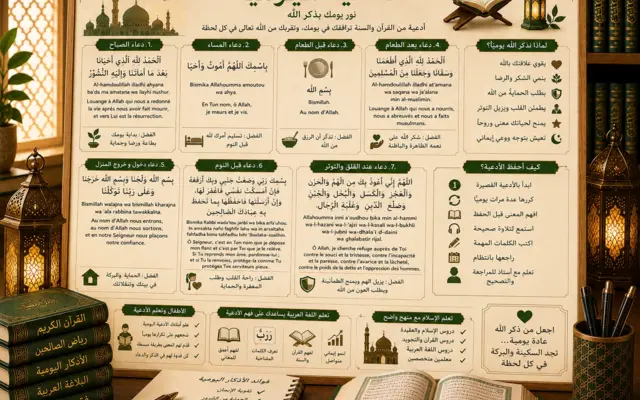 نور يومك بذكر الله
أدعية من القرآن والسنة ترافقك في يومك، وتقربك من الله تعالى في كل لحظة
1. دعاء الصباح
الْحَمْدُ لِلَّهِ الَّذِي أَحْيَانَا
بَعْدَ مَا أَمَاتَنَا وَإِلَيْهِ النُّشُوْرُ
Al-hamdoulillah illadhi ahyana
ba'da ma amatana we ilayhi nushur.
Louange à Allah qui nous a redonné
la vie après nous avoir fait mourir,
et vers Lui est la résurrection.
الفضل: بداية يومك
بطاعة ورضا وحماية
2. دعاء المساء
بِاسْمِكَ اللَّهُمَّ أَمُوتُ وَأَحْيَا
Bismika Allahumma emoutou
wa ahya.
En Ton nom, ô Allah,
je meurs et je vis.
الفضل: تسليم أمرك لله
قبل النوم
3. دعاء قبل الطعام
بِسْمِ اللَّه
Bismillah.
Au nom d'Allah.
الفضل: تذكر أن الرزق
من الله
4. دعاء بعد الطعام
الْحَمْدُ لِلَّهِ الَّذِي أَطْعَمَنَا
وَسَقَانَا وَجَعَلَنَا مِنَ الْمُسْلِمِينَ
Al-hamdoulillah illadhi at'amana
wa saqana wa ja'alana
min al-muslimin.
Louange à Allah qui nous a nourris,
nous a abreuvés et nous a faits
musulmans.
الفضل: شكر الله على
نعمه الظاهرة والباطنة
لماذا نذكر الله يوميًا؟
يقوي علاقتك بالله
ينمي الشكر والرضا
يطلب الحماية من الله
يطمئن القلب ويزيل التوتر
يمنح لحياتك معنى وروحاً
تعيش بتوجه ووعي إيماني
5. دعاء دخول و خروج المنزل
بِسْمِ اللَّهِ وَلَجْنَا وَبِسْمِ اللَّهِ خَرَجْنَا
وَعَلَى رَبِّنَا تَوَكَّلْنَا
Bismillah walajna wa bismillah kharajna
wa 'ala rabbina tawakkalna.
Au nom d'Allah nous entrons,
au nom d'Allah nous sortons,
et en notre Seigneur nous plaçons
notre confiance.
الفضل: الحماية والبركة
في بيتك وتنقلاتك
6. دعاء قبل النوم
بِاسْمِكَ رَبِّي وَضَعْتُ جَنْبِي وَبِكَ أَرْفَعُهُ
فَإِنْ أَمْسَكْتَ نَفْسِي فَاغْفِرْ لَهَا،
وَإِنْ أَرْسَلْتَهَا فَاحْفَظْهَا بِمَا تَحْفَظُ
بِهِ عِبَادَكَ الصَّالِحِينَ
Ô Seigneur, c'est en Ton nom que je dépose
mon flanc et c'est par Toi que je le relève.
Si Tu reprends mon âme, pardonne-lui ;
et si Tu la renvoies, protège-la comme Tu
protèges Tes serviteurs pieux.
الفضل: راحة القلب وطلب
المغفرة والحماية
7. دعاء عند القلق والتوتر
اللَّهُمَّ إِنِّي أَعُوذُ بِكَ مِنَ الْهَمِّ وَالْحَزَنِ
وَالْعَجْزِ وَالْكَسَلِ وَالْبُخْلِ وَالْجُبْنِ
وَضَلَعِ الدَّيْنِ وَغَلَبَةِ الرِّجَالِ.
Allahoumma inni a'oudhou bika min al-hammi
wa-l-hazani wa-l-'ajzi wa-l-kasali wa-l-bukhli
wa-l-jubni wa-dhala'i d-dayni
wa ghalabatir rijal.
Ô Allah, je cherche refuge auprès de Toi
contre le souci et la tristesse, contre l'incapacité
et la paresse, contre l'avarice et la lâcheté,
contre le poids de la dette et l'oppression des hommes.
الفضل: يزيل الهم ويمنح الطمأنينة
ويطلب العون من الله
كيف أحفظ الأدعية؟
1 ابدأ بالأدعية القصيرة
كررها عدة مرات يوميًا
افهم المعنى قبل الحفظ
استمع لتلاوة صحيحة
اكتب الكلمات المهمة
راجعها بانتظام
تعلم مع أستاذ للمراجعة
والتصحيح
الأطفال وتعليم الأدعية
تعلم اللغة العربية يساعدك على فهم الأدعية
تعلم الإسلام مع منهج واضح
دروس الإسلام والعقيدة
دروس القرآن والتجويد
دروس اللغة العربية
معلمين متخصصين
اجعل من ذكر الله
عادة يومية...
تجد السكينة والبركة
في كل لحظة
القرآن الكريم
رياض الصالحين
الأذكار اليومية
البلاغة العربية
فوائد الأذكار اليومية